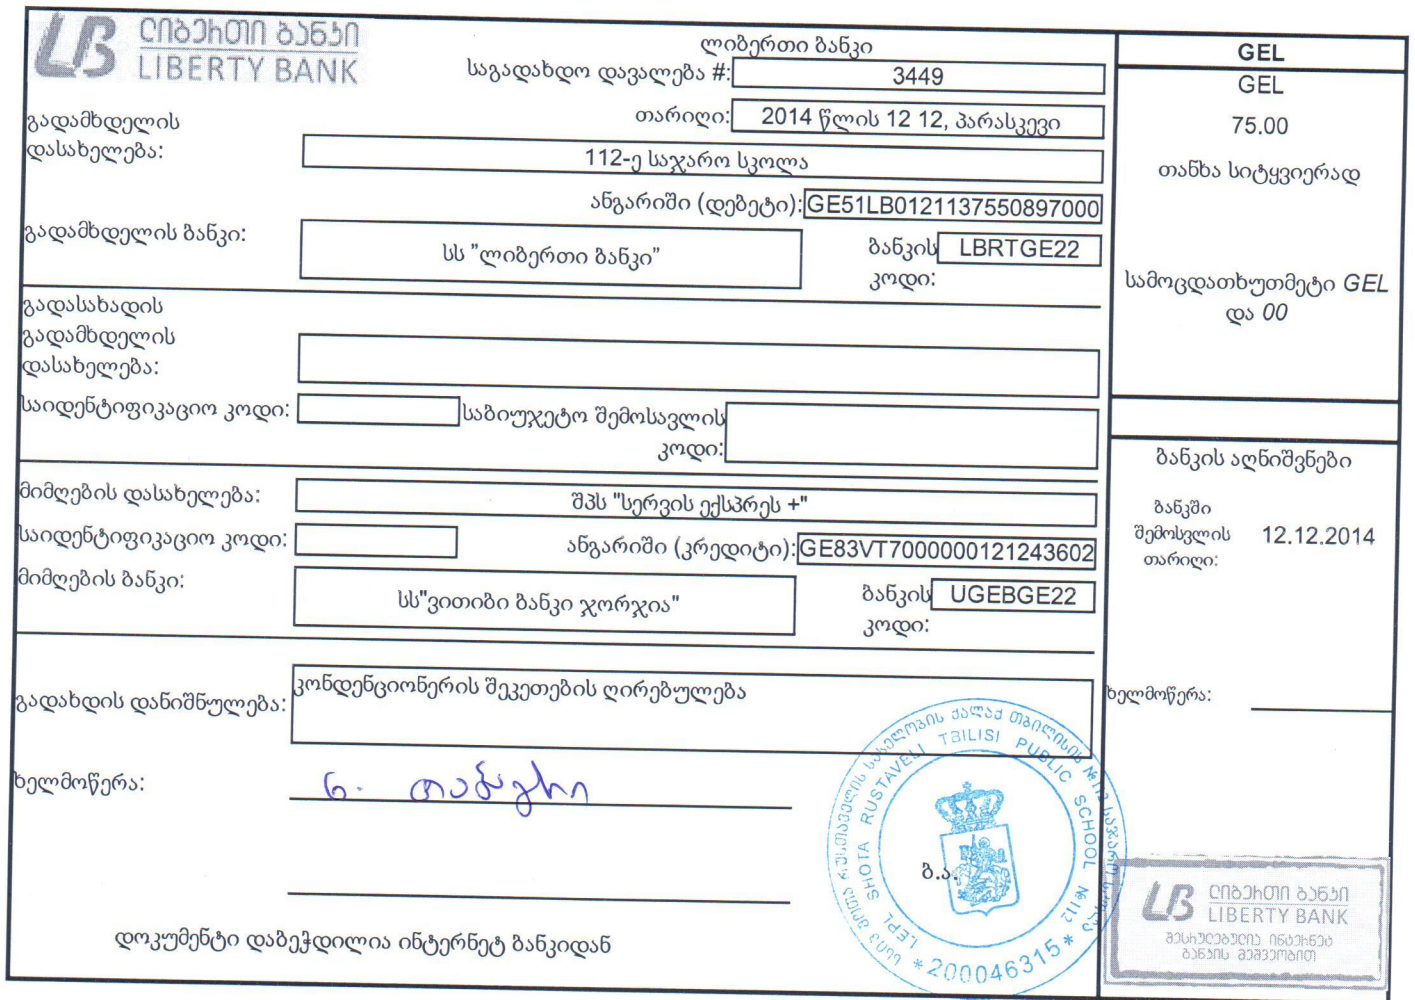 ლიბერთი ბანკი
LIBERTY BANK
ლიბერთი ბანკი
საგადახდო დავალება #: 3449
თარიღი: 2014 წლის 12 12, პარასკევი
გადამხდელის
დასახელება: 112-ე საჯარო სკოლა
ანგარიში (დებეტი): GE51LB0121137550897000
გადამხდელის ბანკი: სს "ლიბერთი ბანკი" ბანკის კოდი: LBRTGE22
გადასახადის
გადამხდელის
დასახელება:
საიდენტიფიკაციო კოდი: საბიუჯეტო შემოსავლის
კოდი:
მიმღების დასახელება: შპს "სერვის ექსპრეს +"
საიდენტიფიკაციო კოდი: ანგარიში (კრედიტი): GE83VT7000000121243602
მიმღების ბანკი: სს"ვითიბი ბანკი ჯორჯია" ბანკის კოდი: UGEBGE22
გადახდის დანიშნულება: კონდენციონერის შეკეთების ღირებულება
ხელმოწერა:
ბ.ა.
დოკუმენტი დაბეჭდილია ინტერნეტ ბანკიდან
GEL
GEL
75.00
თანხა სიტყვიერად
სამოცდათხუთმეტი GEL
და 00
ბანკის აღნიშვნები
ბანკში
შემოსვლის 12.12.2014
თარიღი:
ხელმოწერა:
LEPL SHOTA RUSTAVELI TBILISI PUBLIC SCHOOL №112
* 200046315 *
ლიბერთი ბანკი
LIBERTY BANK
შესრულებულია ინტერნეტ
ბანკის მეშვეობით